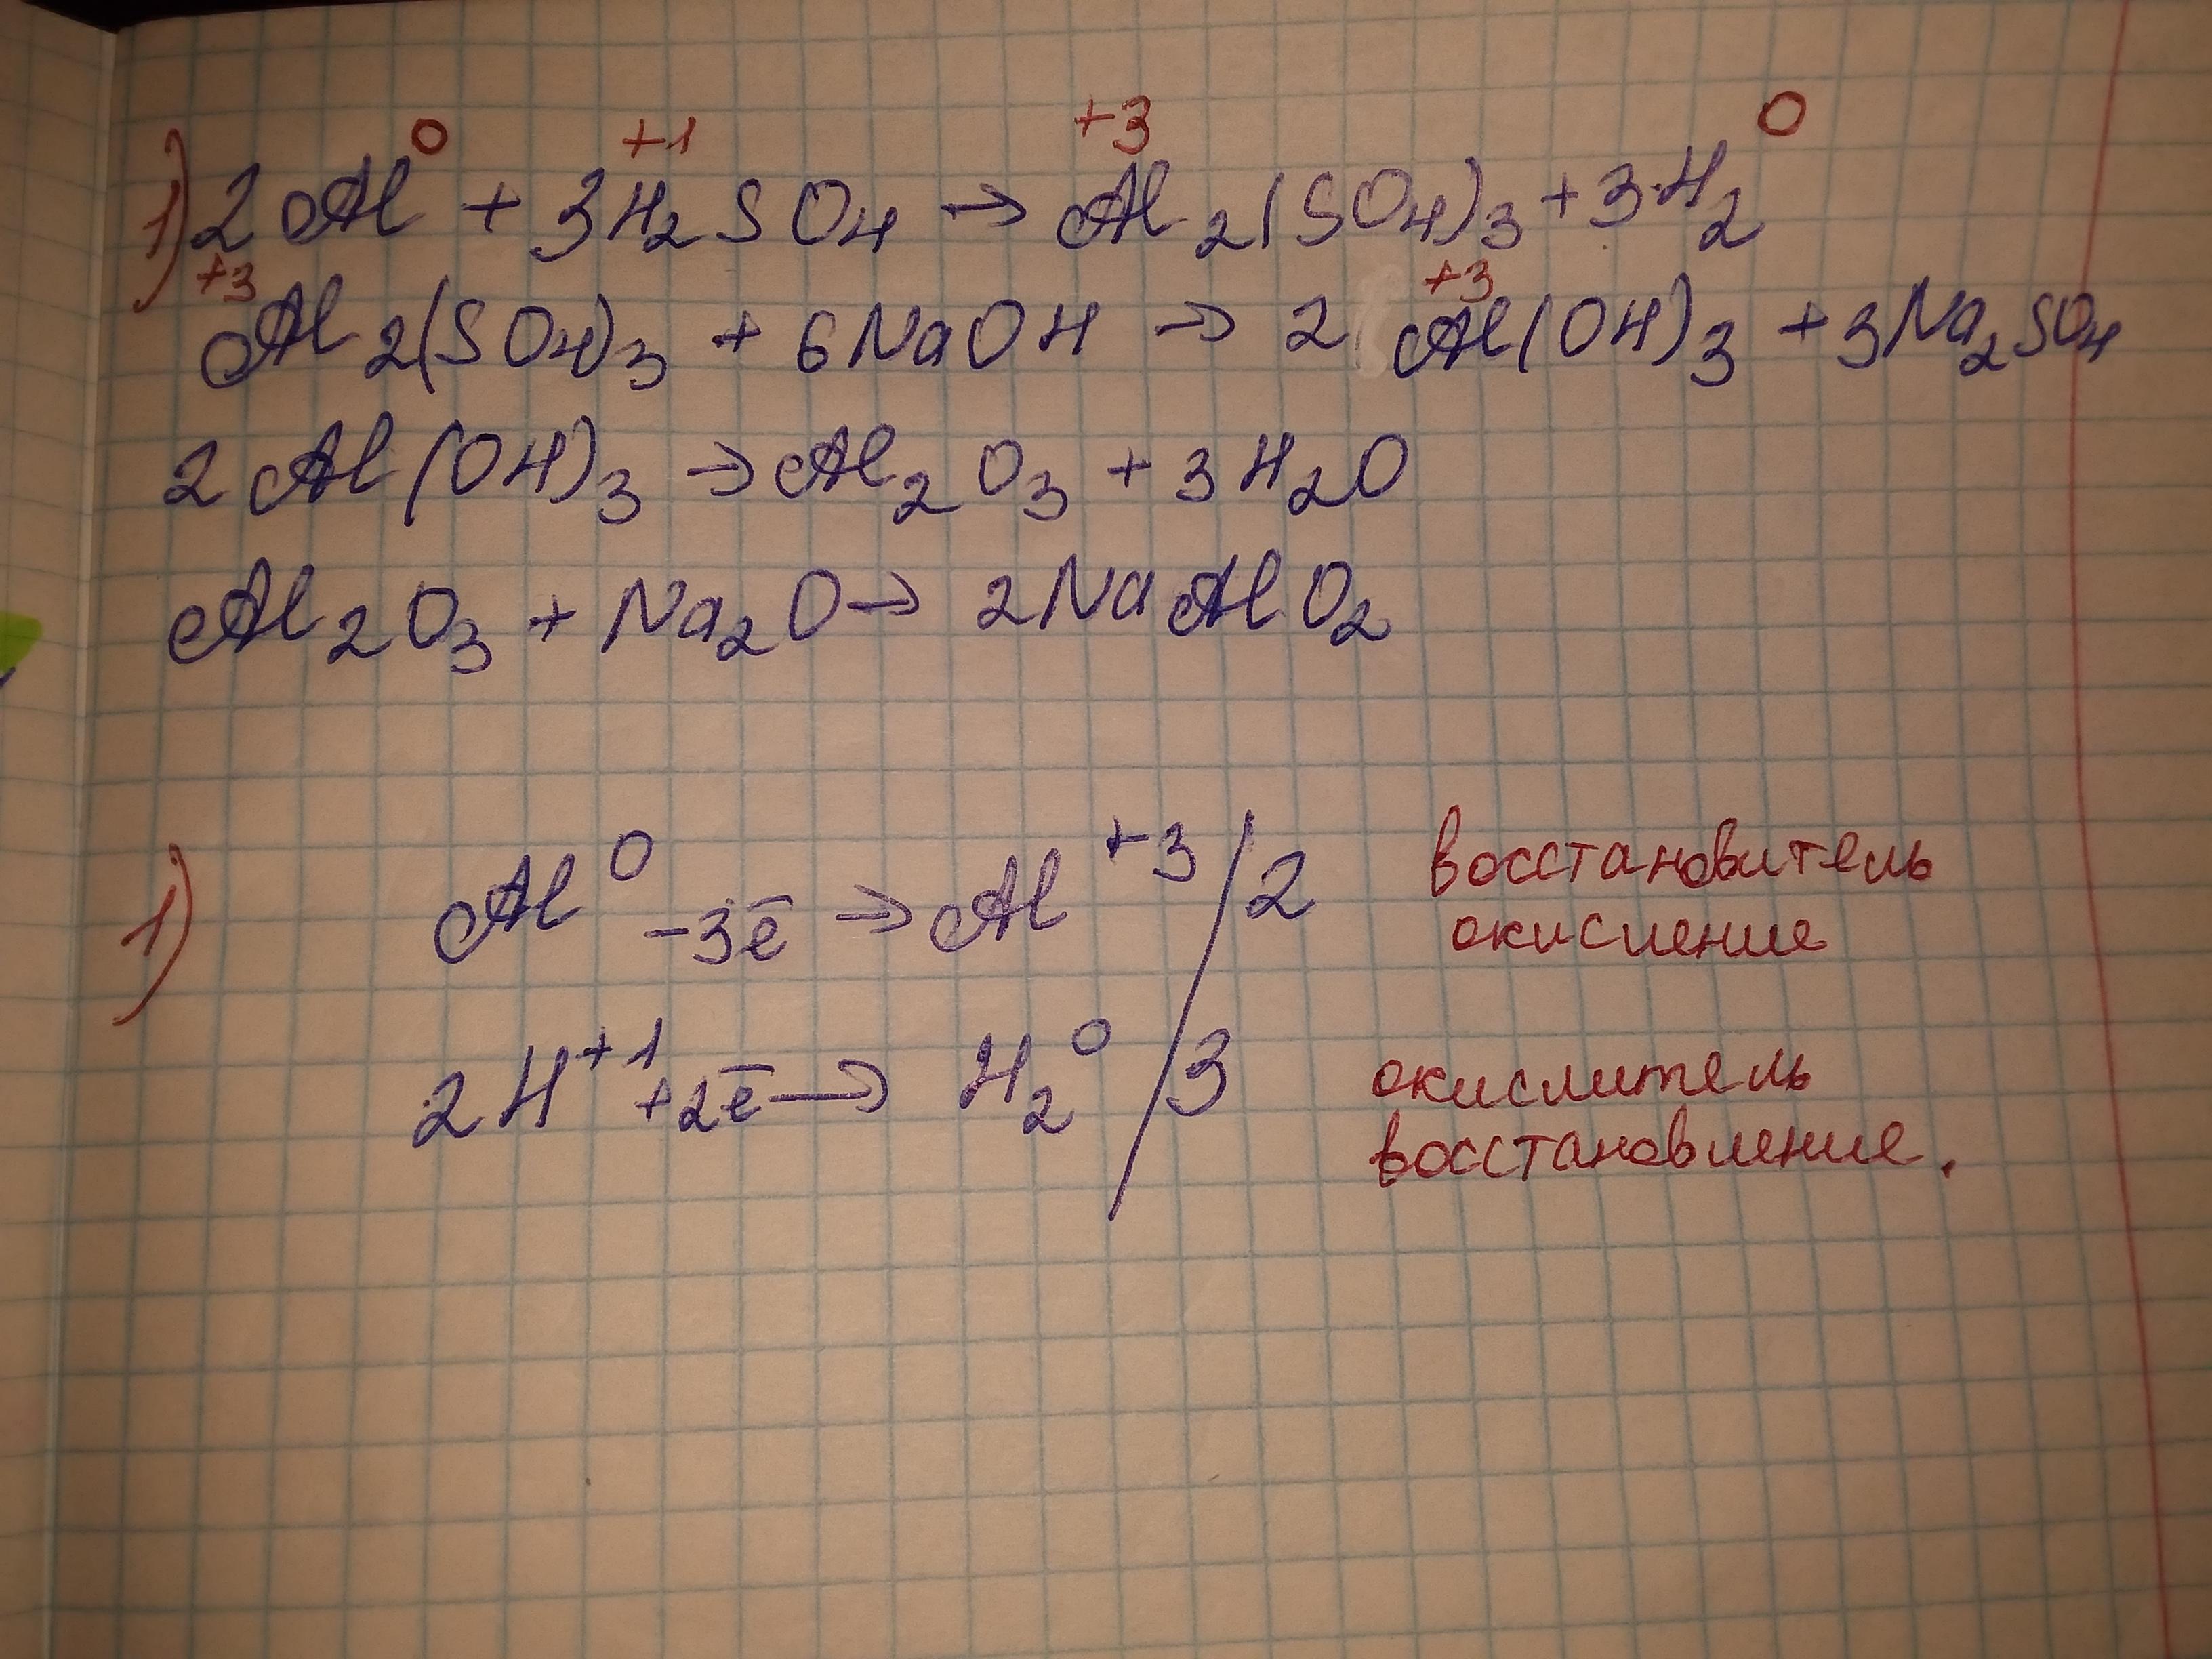 1) 2Al⁰ + 3H₂⁺¹SO₄ → Al₂⁺³(SO₄)₃ + 3H₂⁰
Al₂⁺³(SO₄)₃ + 6NaOH → 2Al⁺³(OH)₃ + 3Na₂SO₄
2Al(OH)₃ → Al₂O₃ + 3H₂O
Al₂O₃ + Na₂O → 2NaAlO₂
1) Al⁰ -3ē → Al⁺³ / 2 восстановитель
окисление
2H⁺¹ +2ē → H₂⁰ / 3 окислитель
восстановление.